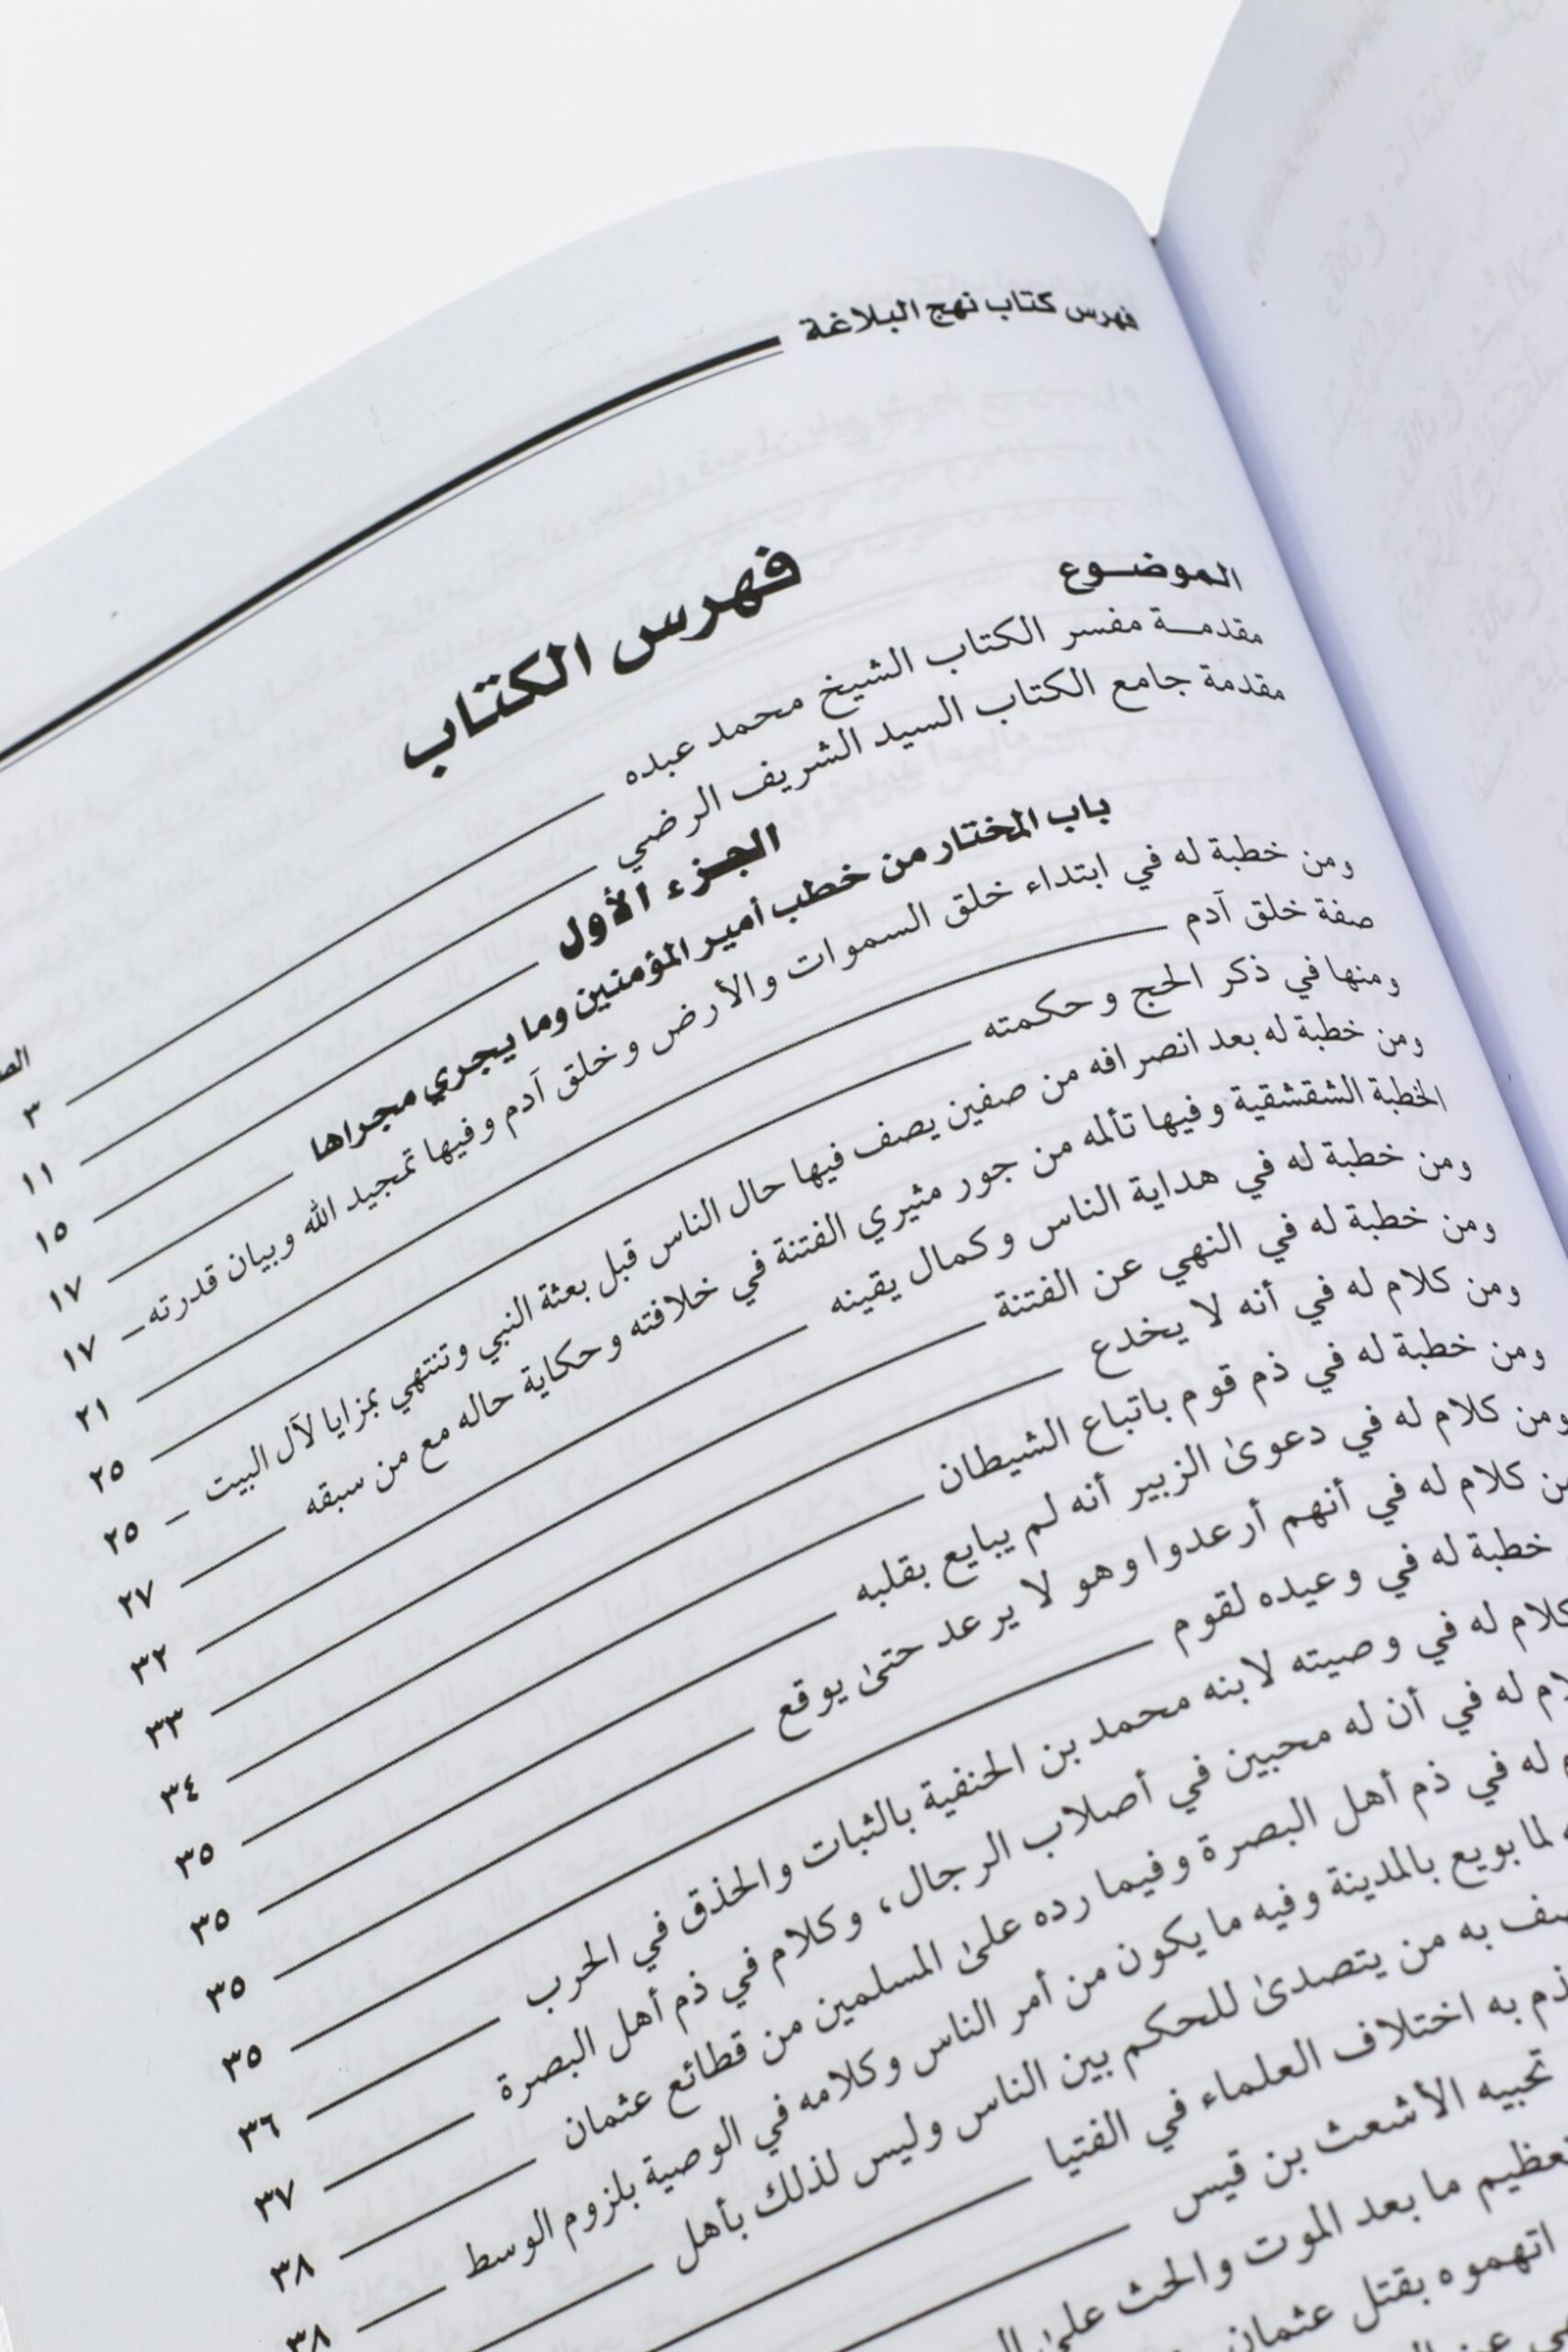 فهرس كتاب نهج البلاغة
فهرس الكتاب
الموضوع
مقدمة مفسر الكتاب الشيخ محمد عبده ٣
مقدمة جامع الكتاب السيد الشريف الرضي ١١
الجزء الأول ١٥
باب المختار من خطب أمير المؤمنين وما يجري مجراها ١٧
ومن خطبة له في ابتداء خلق السموات والأرض وخلق آدم وفيها تمجيد الله وبيان قدرته ١٧
صفة خلق آدم ٢١
ومنها في ذكر الحج وحكمته ٢٥
ومن خطبة له بعد انصرافه من صفين يصف فيها حال الناس قبل بعثة النبي وتنتهي بمزايا لآل البيت ٢٥
الخطبة الشقشقية وفيها تألمه من جور مثيري الفتنة في خلافته وحكاية حاله مع من سبقه ٢٧
ومن خطبة له في هداية الناس وكمال يقينه ٣٢
ومن خطبة له في النهي عن الفتنة ٣٣
ومن كلام له في أنه لا يخدع ٣٤
ومن خطبة له في ذم قوم باتباع الشيطان ٣٥
ومن كلام له في دعوىٰ الزبير أنه لم يبايع بقلبه ٣٥
كلام له في أنهم أرعدوا وهو لا يرعد حتىٰ يوقع ٣٥
خطبة له في وعيده لقوم ٣٥
كلام له في وصيته لابنه محمد بن الحنفية بالثبات والحذق في الحرب ٣٦
له في أن له محبين في أصلاب الرجال، وكلام في ذم أهل البصرة ٣٧
له في ذم أهل البصرة وفيما رده علىٰ المسلمين من قطائع عثمان ٣٨
لما بويع بالمدينة وفيه ما يكون من أمر الناس وكلامه في الوصية بلزوم الوسط ٣٨
به من يتصدىٰ للحكم بين الناس وليس لذلك بأهل
به اختلاف العلماء في الفتيا
الأشعث بن قيس
ما بعد الموت والحث علىٰ
اتهموه بقتل عثمان